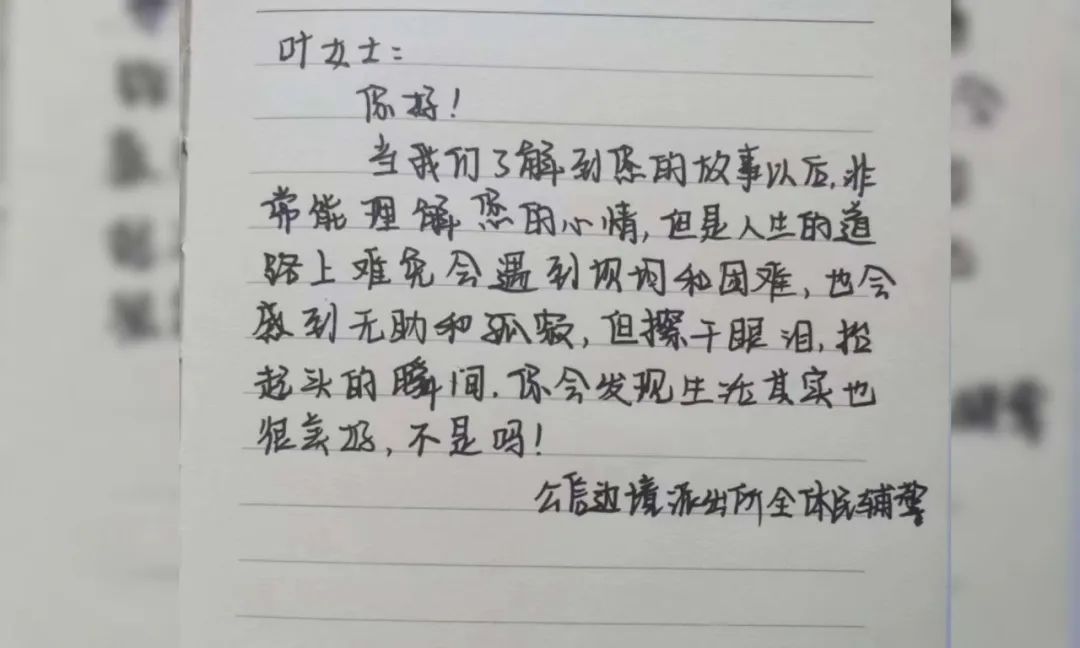 叶女士：
你好！
当我们了解到您的故事以后，非
常能理解您的心情，但是人生的道
路上难免会遇到坝坷和困难，也会
感到无助和孤寂，但擦干眼泪，抬
起头的瞬间，你会发现生活其实也
很美好，不是吗！
公信边境派出所全体民辅警